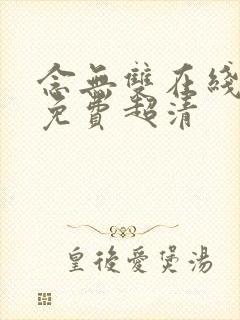 念無雙在綫
免費超清
皇後愛煲湯